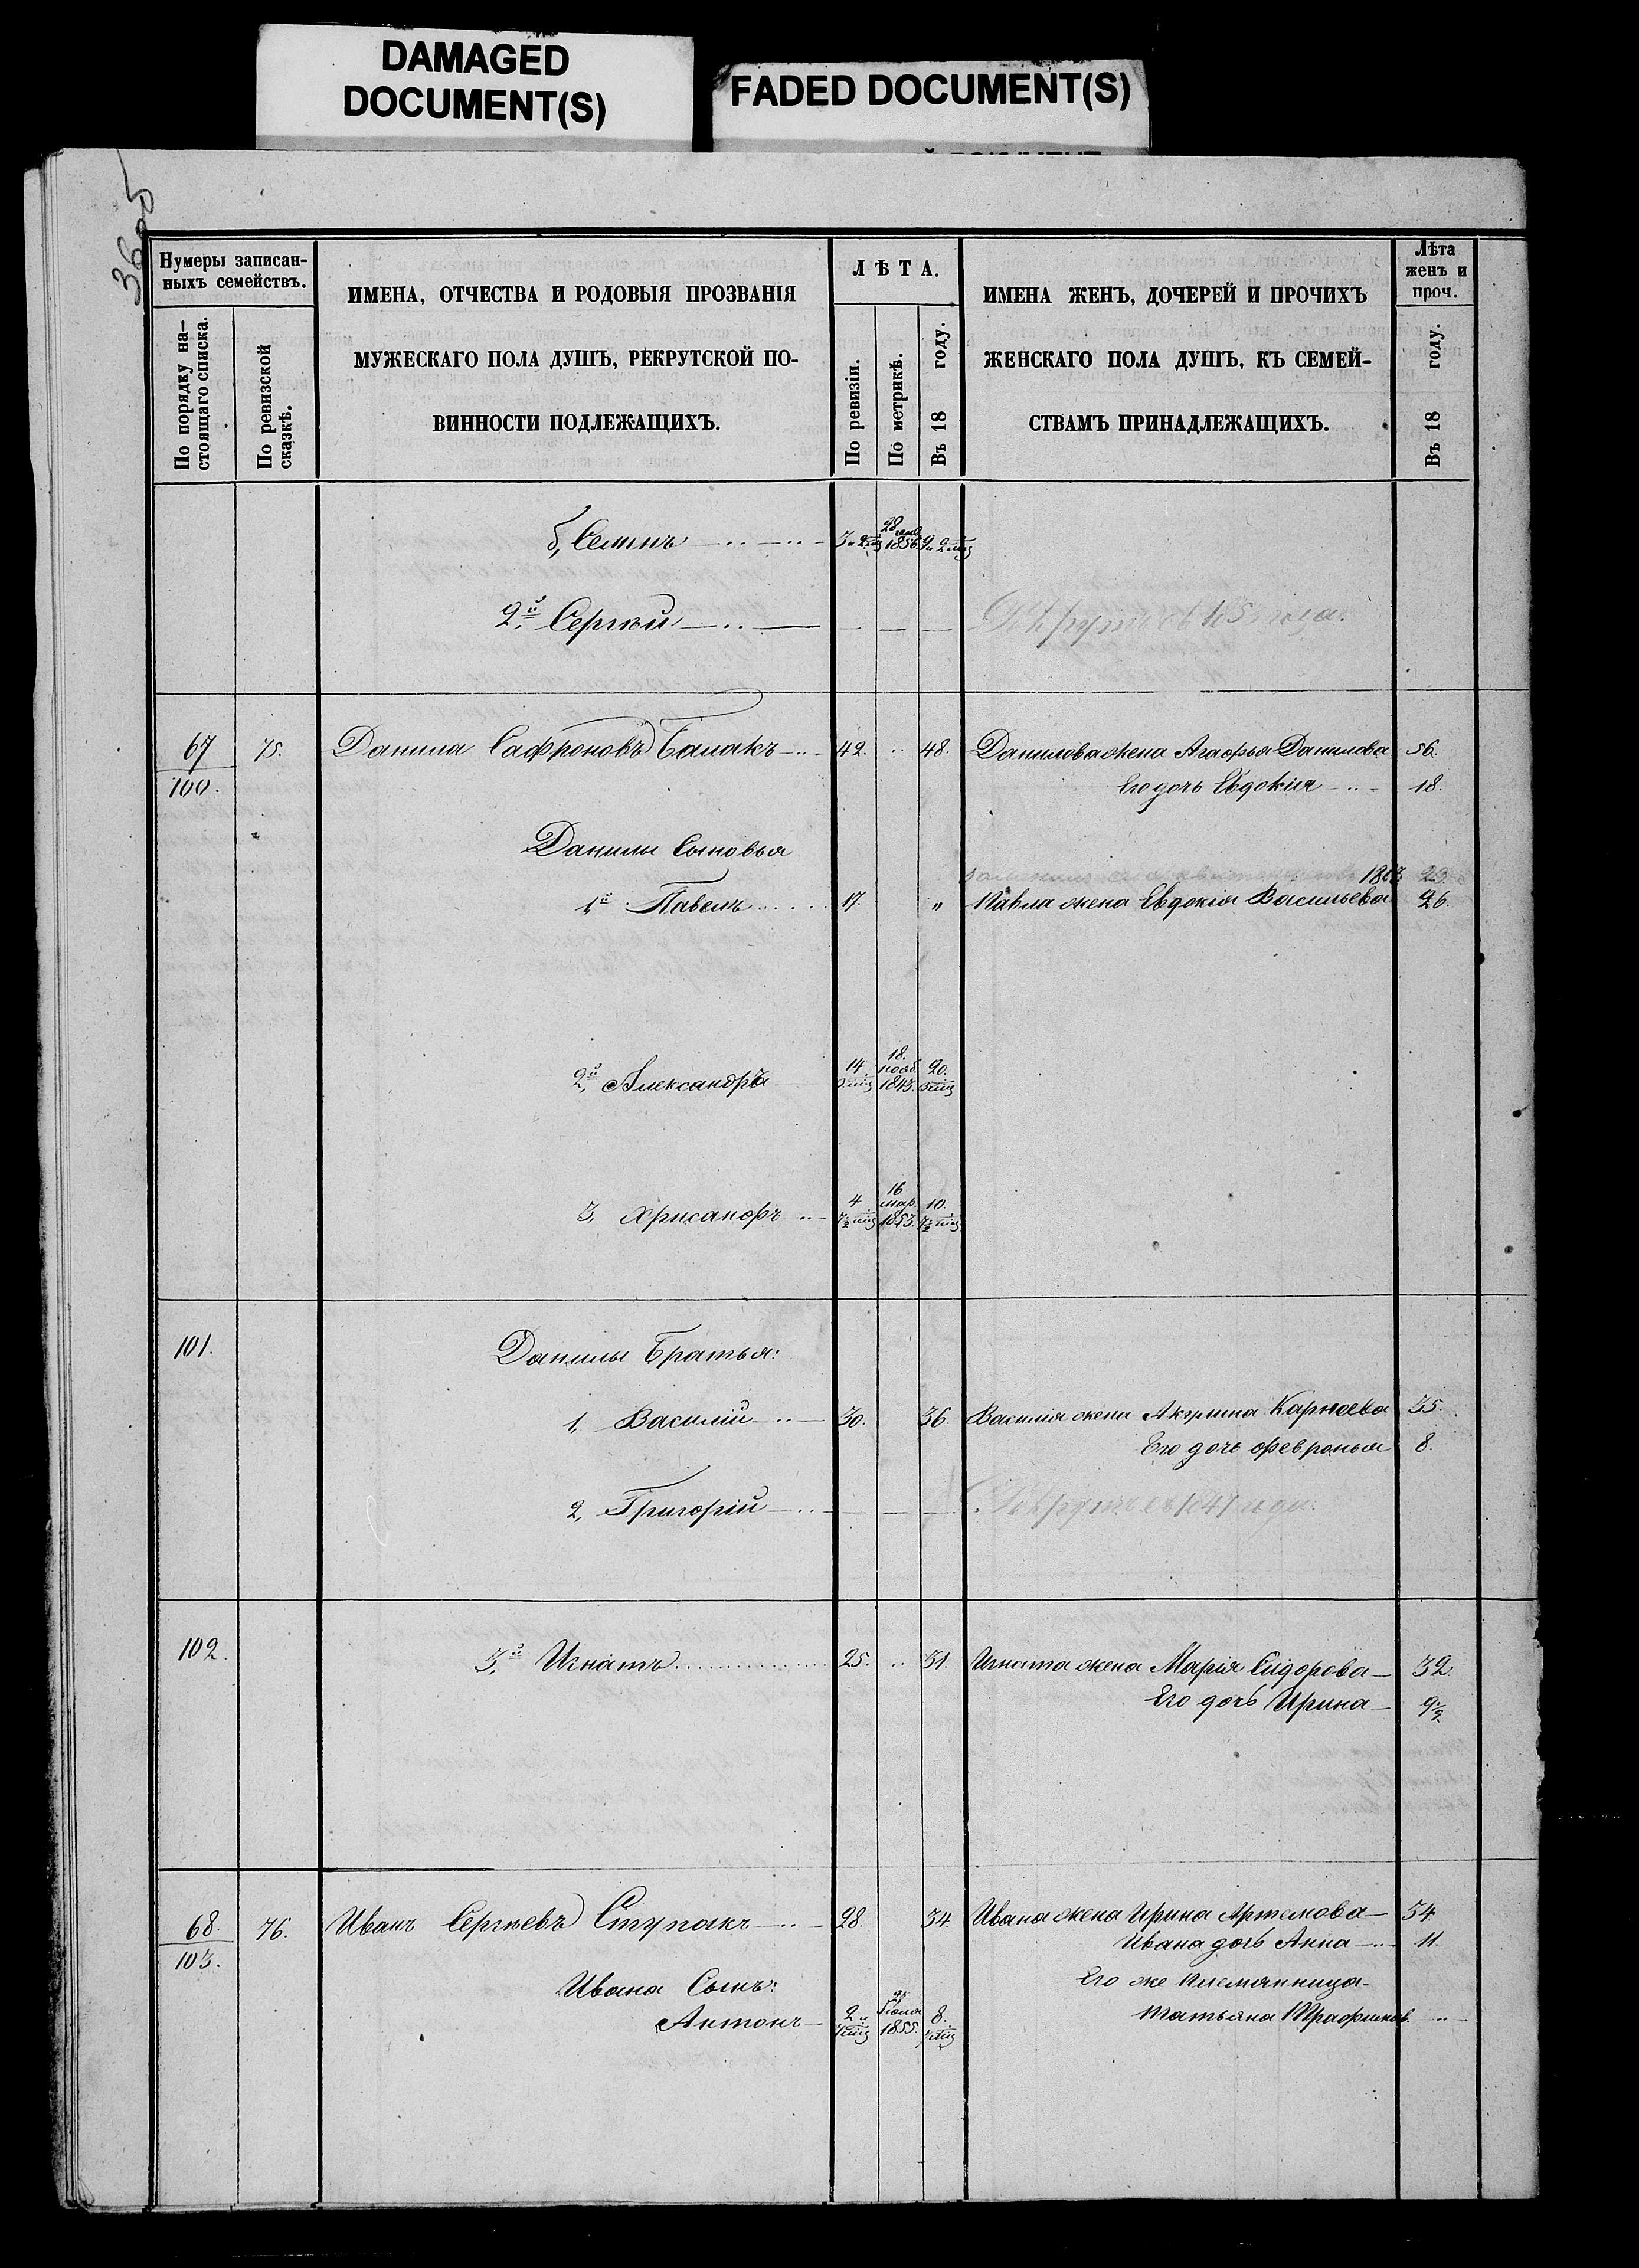 DAMAGED
DOCUMENT(S)
FADED DOCUMENT(S)
Нумеры записан-
ныхъ семействъ.
По порядку на-
стоящаго списка.
По ревизской
сказкѣ.
ИМЕНА, ОТЧЕСТВА И РОДОВЫЯ ПРОЗВАНІЯ
МУЖЕСКАГО ПОЛА ДУШЪ, РЕКРУТСКОЙ ПО-
ВИННОСТИ ПОДЛЕЖАЩИХЪ.
ЛѢТА.
По ревизіи.
По метрикѣ.
Въ 18 году.
ИМЕНА ЖЕНЪ, ДОЧЕРЕЙ И ПРОЧИХЪ
ЖЕНСКАГО ПОЛА ДУШЪ, КЪ СЕМЕЙ-
СТВАМЪ ПРИНАДЛЕЖАЩИХЪ.
Лѣта
женъ и
проч.
Въ 18 году.
1856
2й Сергѣй
67 75. Данила Сафроновъ 42. 48. Данилова жена Агафья Данилова 56.
100. Его дочь Евдокія 18.
Данилы Сыновья
1863 29
1й Павелъ 17. " Павла жена Евдокія Васильева 26.
18.
14 нояб. 20.
2й Александръ 1843.
16
4 мар. 10.
3, Хрисанфъ 1853.
101. Данилы Братья:
1, Василій 30. 36. Василія жена Акулина Карнеева 35.
Его дочь Февронья 8.
2, Григорій
102. 3й Игнатъ 25. 31. Игната жена Марія Сидорова 32
Его дочь Ирина 9½
68. 76. Иванъ Сергѣевъ Ступакъ 28. 34. Ивана жена Ирина Артемова 34.
103. Ивана дочь Анна 11
Ивана Сынъ: Его же племянница
Антонъ 2 1855. 8. Татьяна